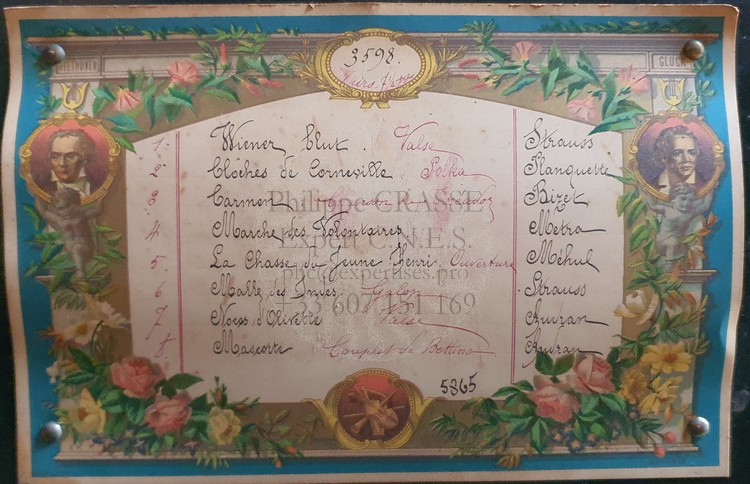 BEETHOVEN GLUCK
3598.
Airs
1. Wiener Blut. Valse Strauss
2 Cloches de Corneville. Polka Planquette
3 Carmen Bizet
4 Marche des Volontaires Metra
5. La Chasse du Jeune Henri. Ouverture Méhul
6 Malle des Indes Galop Strauss
7 Noces d'Olivette Valse Auvran
8 Mascotte Couplet de Bettina. Auvran
5865
Philippe CRASSE
Expert C.N.E.S.
phc@expertises.pro
+33 607 151 169